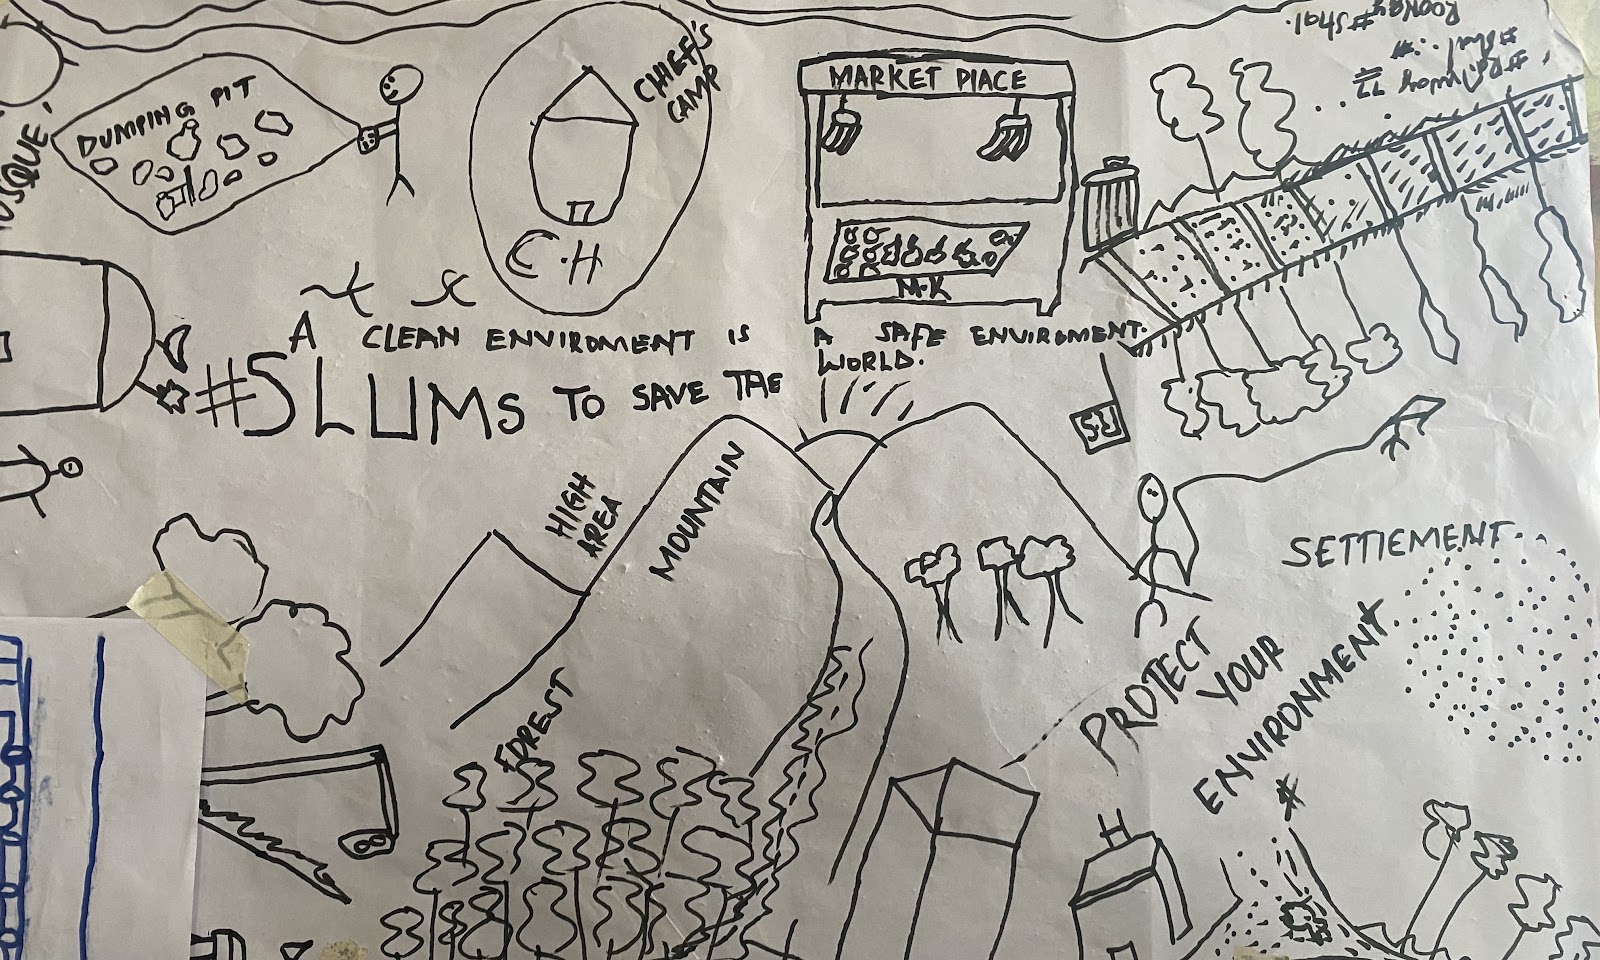 CHIEF'S
CAMP
MARKET PLACE
DUMPING PIT
C.H
M.K
A CLEAN ENVIROMENT IS A SAFE ENVIROMENT.
#SLUMS TO SAVE THE WORLD.
HIGH
AREA
MOUNTAIN
FOREST
SETTLEMENT
PROTECT
YOUR
ENVIRONMENT